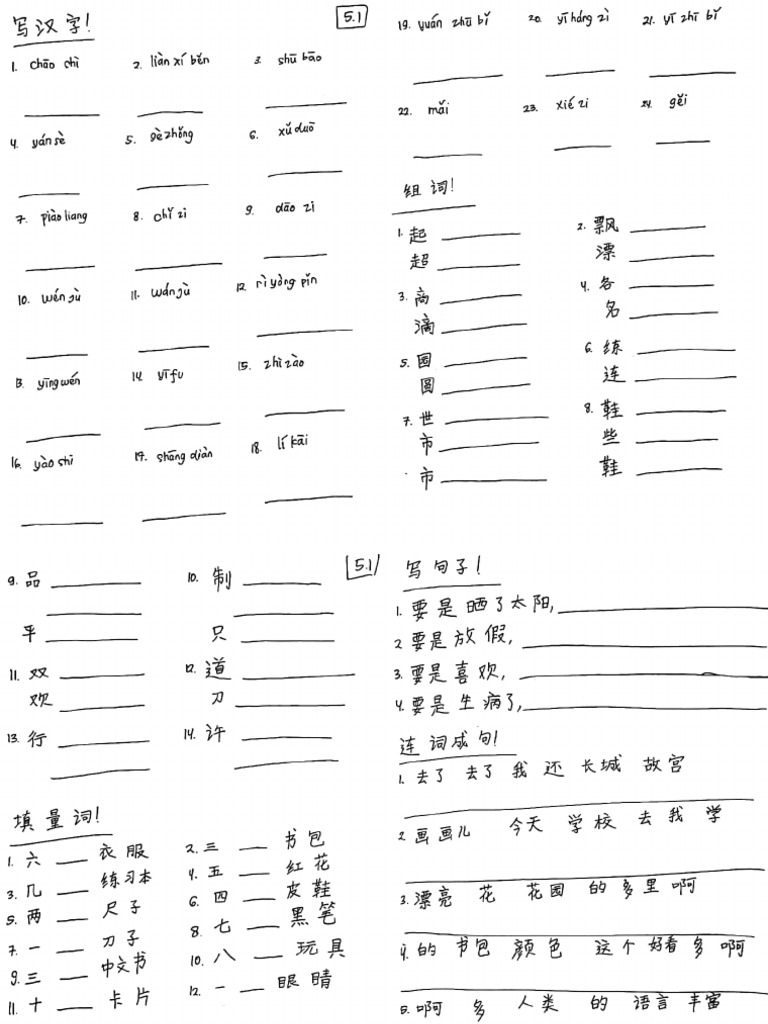 写汉字! 5.1
1. chāo shì 2. liàn xí běn 3. shū bāo
4. yán sè 5. gè zhǒng 6. xǔ duō
7. piào liang 8. chǐ zi 9. dāo zi
10. wén jù 11. wán jù 12. rì yòng pǐn
13. yīng wén 14. yī fu 15. zhì zào
16. yào shi 17. shāng diàn 18. lí kāi
19. yuán zhū bǐ 20. yī háng zì 21. yī zhī bǐ
22. mǎi 23. xié zi 24. gěi
组词!
1. 起 2. 飘
超 漂
3. 商 4. 各
滴 名
5. 园 6. 练
圆 连
7. 世 8. 鞋
市 些
市 鞋
5.1
9. 品 10. 制
平 只
11. 双 12. 道
欢 刀
13. 行 14. 许
填量词!
1. 六 衣服 2. 三 书包
3. 几 练习本 4. 五 红花
5. 两 尺子 6. 四 皮鞋
7. 一 刀子 8. 七 黑笔
9. 三 中文书 10. 八 玩具
11. 十 卡片 12. 一 眼睛
写句子!
1. 要是晒了太阳,
2 要是放假,
3. 要是喜欢,
4. 要是生病了,
连词成句!
1. 去了 去了 我 还 长城 故宫
2 画画儿 今天 学校 去 我 学
3. 漂亮 花 花园 的 多 里 啊
4. 的 书包 颜色 这个 好看 多 啊
5. 啊 多 人类 的 语言 丰富